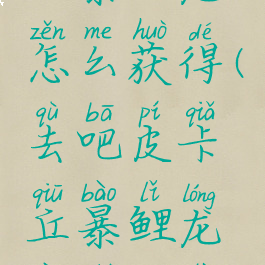 zěn me huò dé
怎么获得(
qù bā pí qiǎ
去吧皮卡
qiū bào lǐ lóng
丘暴鲤龙